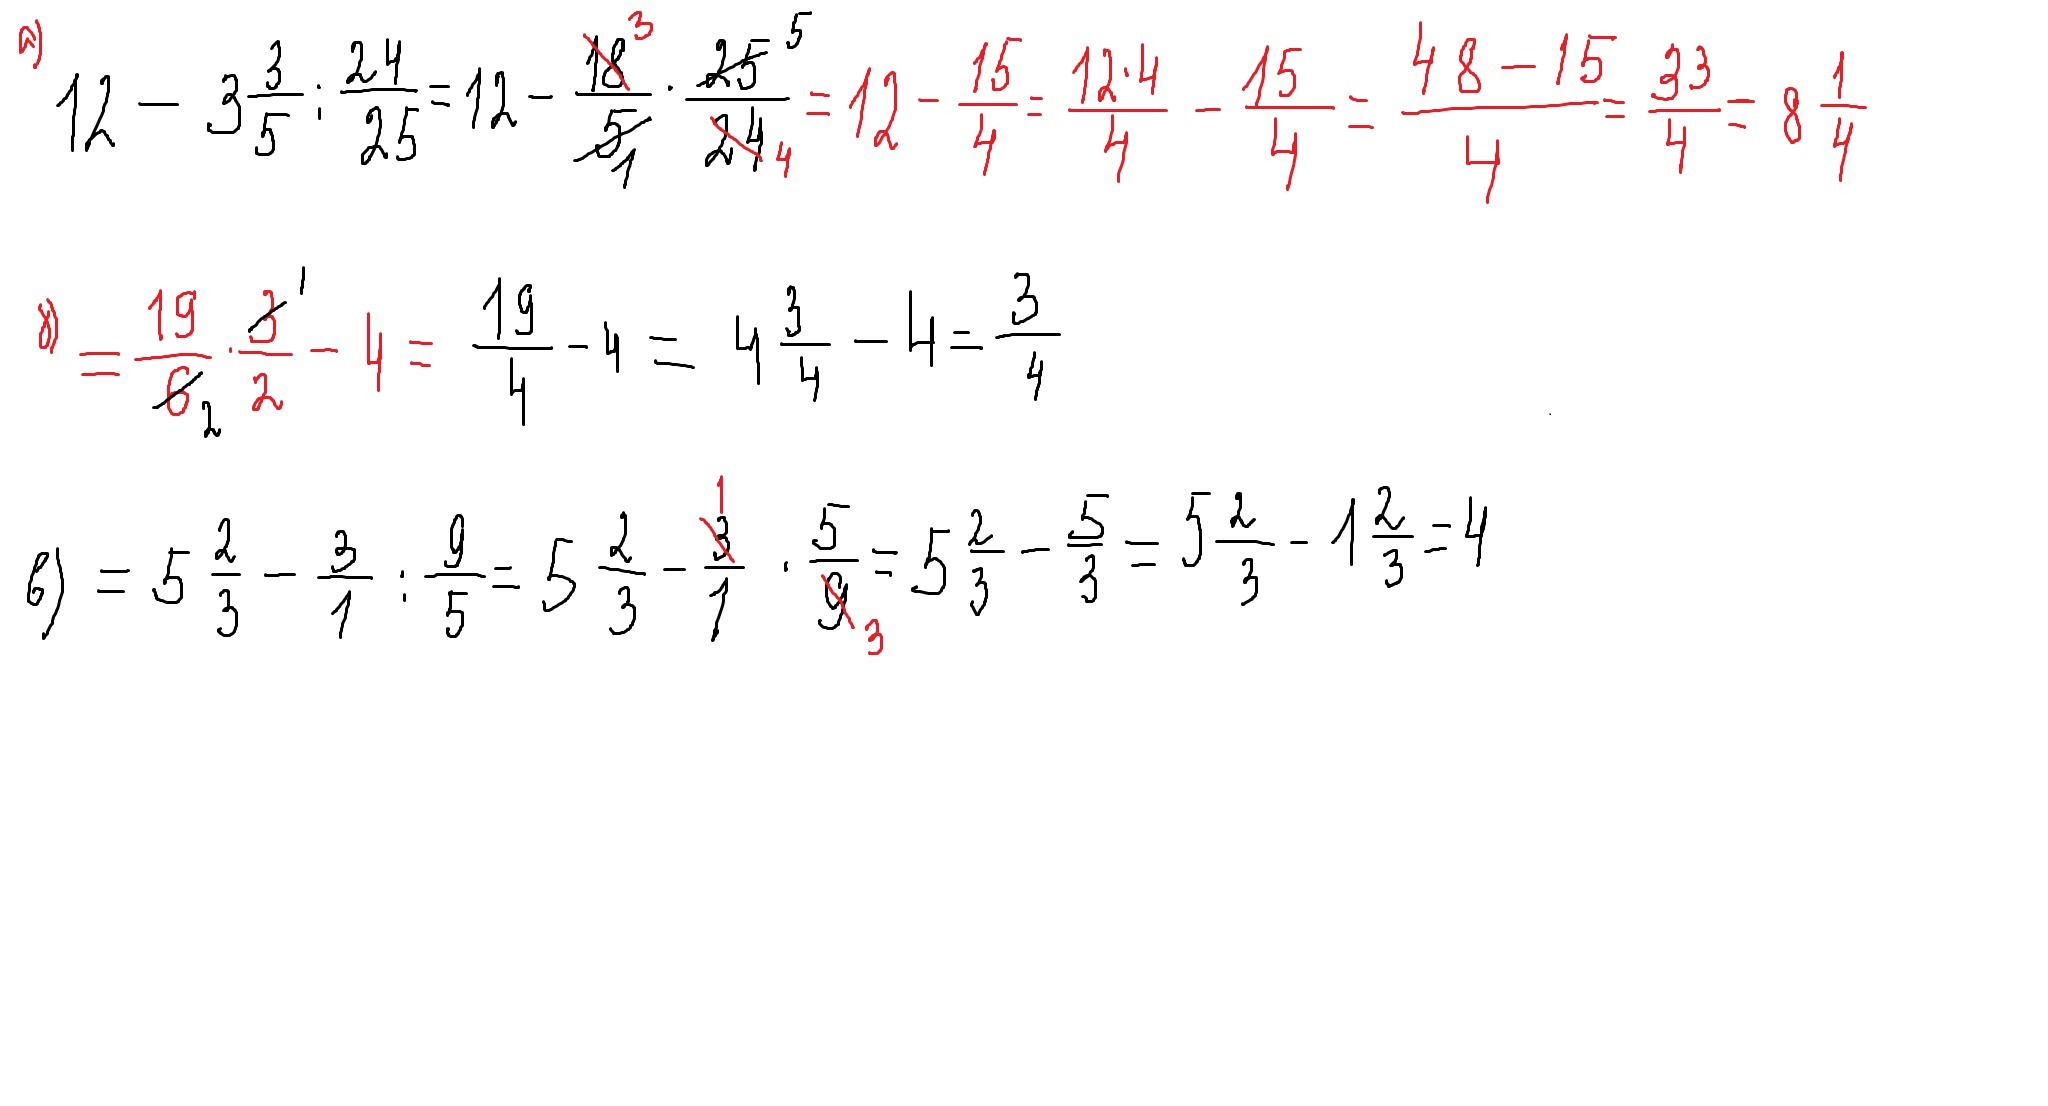 а) 12 - 3 3/5 : 24/25 = 12 - 18/5 · 25/24 = 12 - 15/4 = 12·4/4 - 15/4 = 48-15/4 = 33/4 = 8 1/4
б) = 19/6 · 3/2 - 4 = 19/4 - 4 = 4 3/4 - 4 = 3/4
в) = 5 2/3 - 3/1 : 9/5 = 5 2/3 - 3/1 · 5/9 = 5 2/3 - 5/3 = 5 2/3 - 1 2/3 = 4